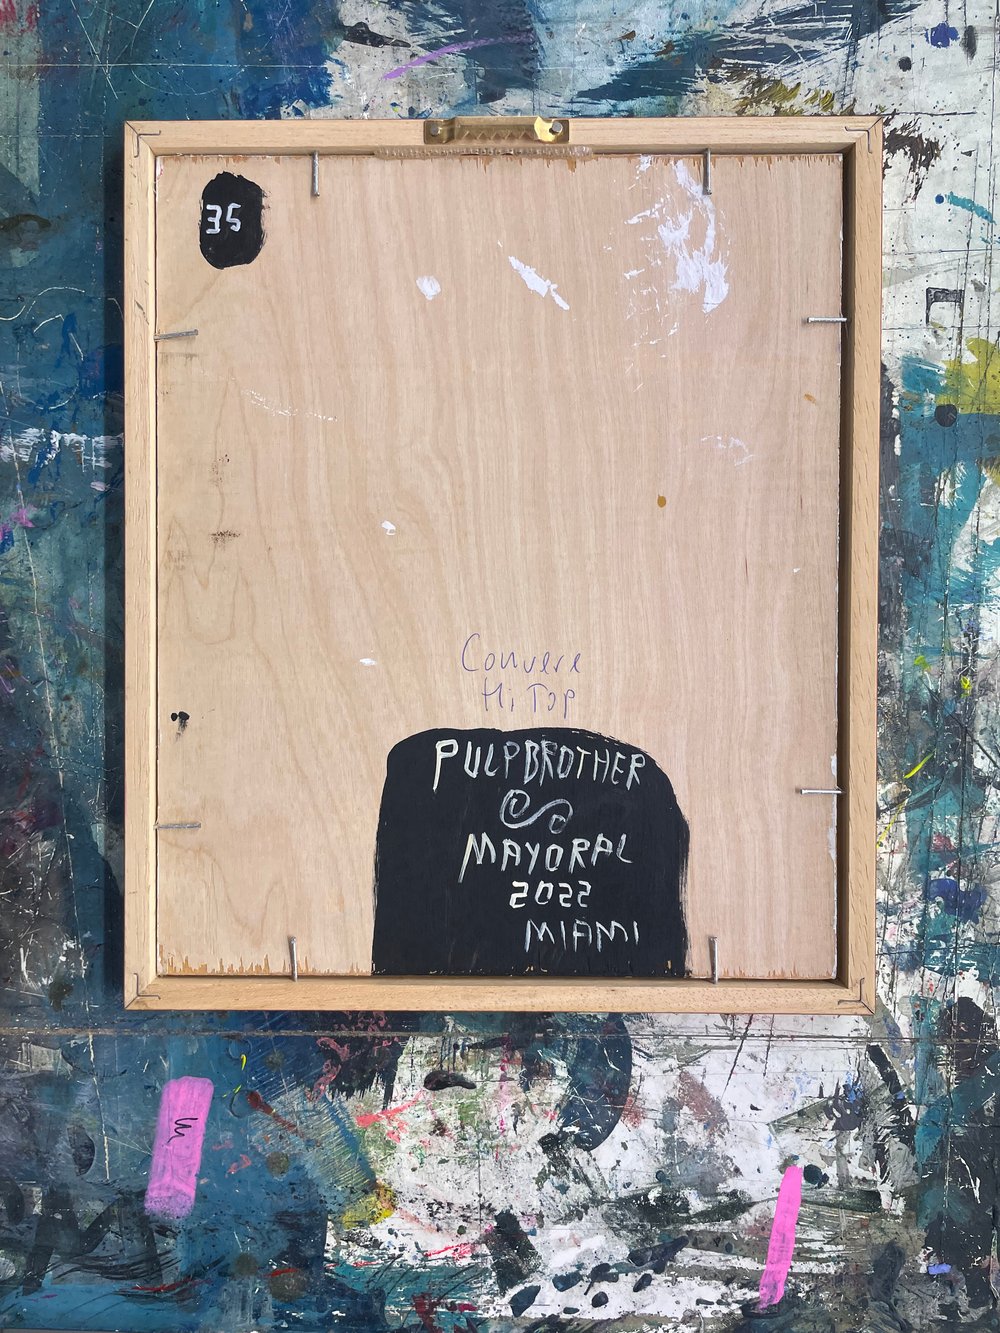 35
Convere
Hi Top
PULPBROTHER
MAYORAL
2022
MIAMI